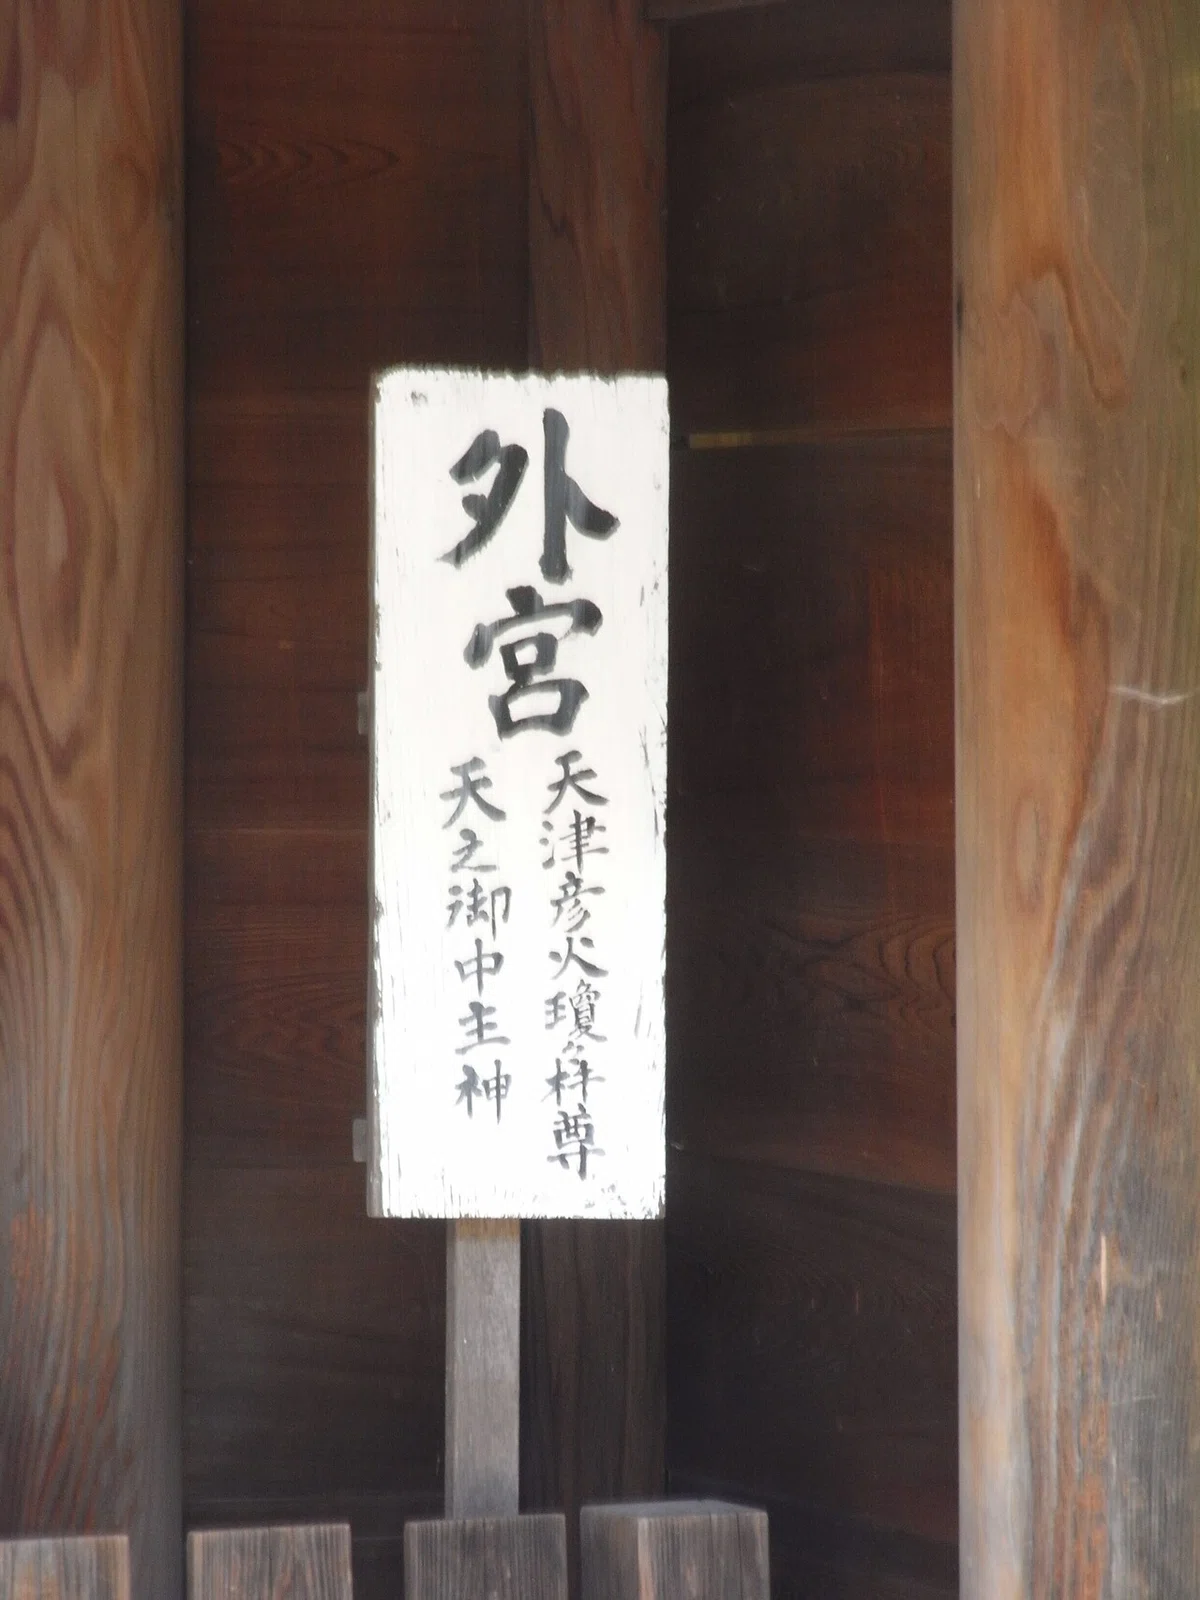 外宮
天津彦火瓊々杵尊
天之御中主神